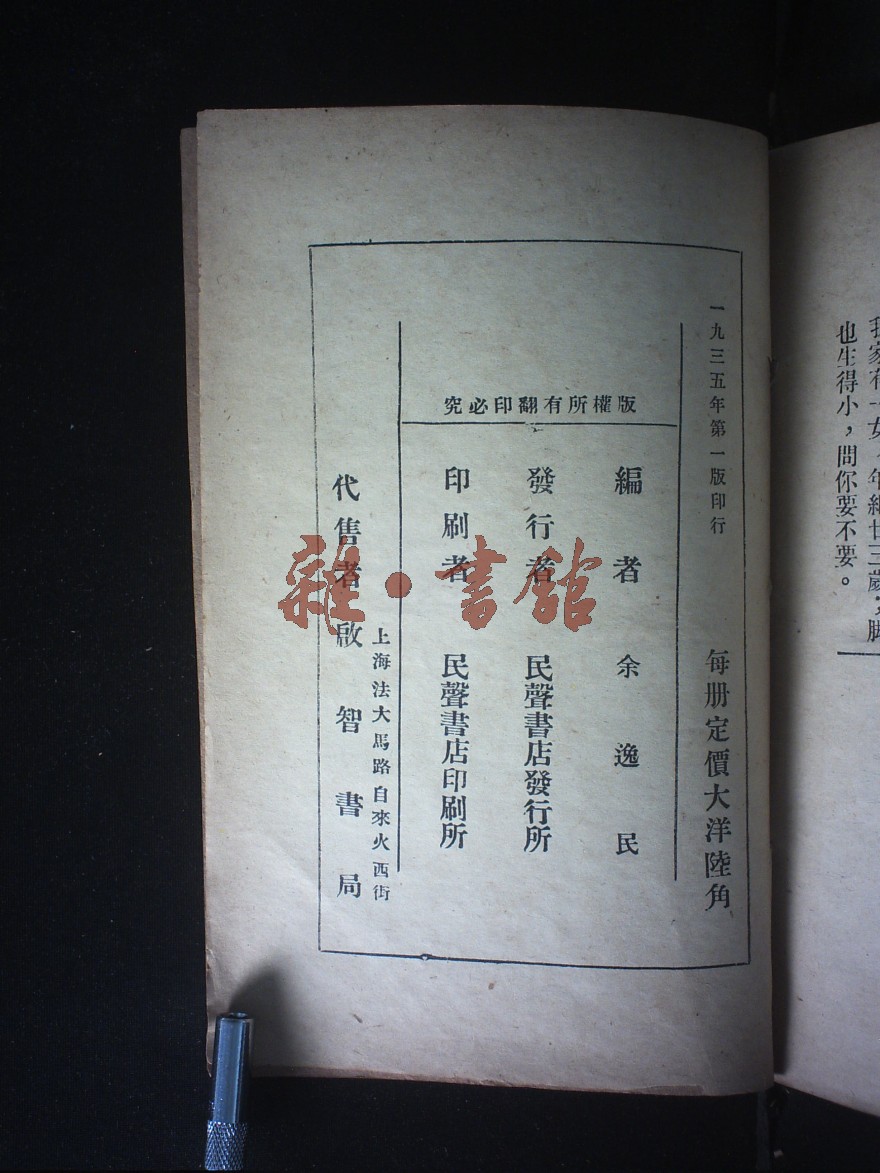 我家有一女，年紀廿三歲，脚
也生得小，問你要不要。
一九三五年第一版印行
每册定價大洋陸角
版權所有翻印必究
編者 余逸民
發行者 民聲書店發行所
印刷者 民聲書店印刷所
上海法大馬路自來火西街
代售者啟智書局
雜·書館